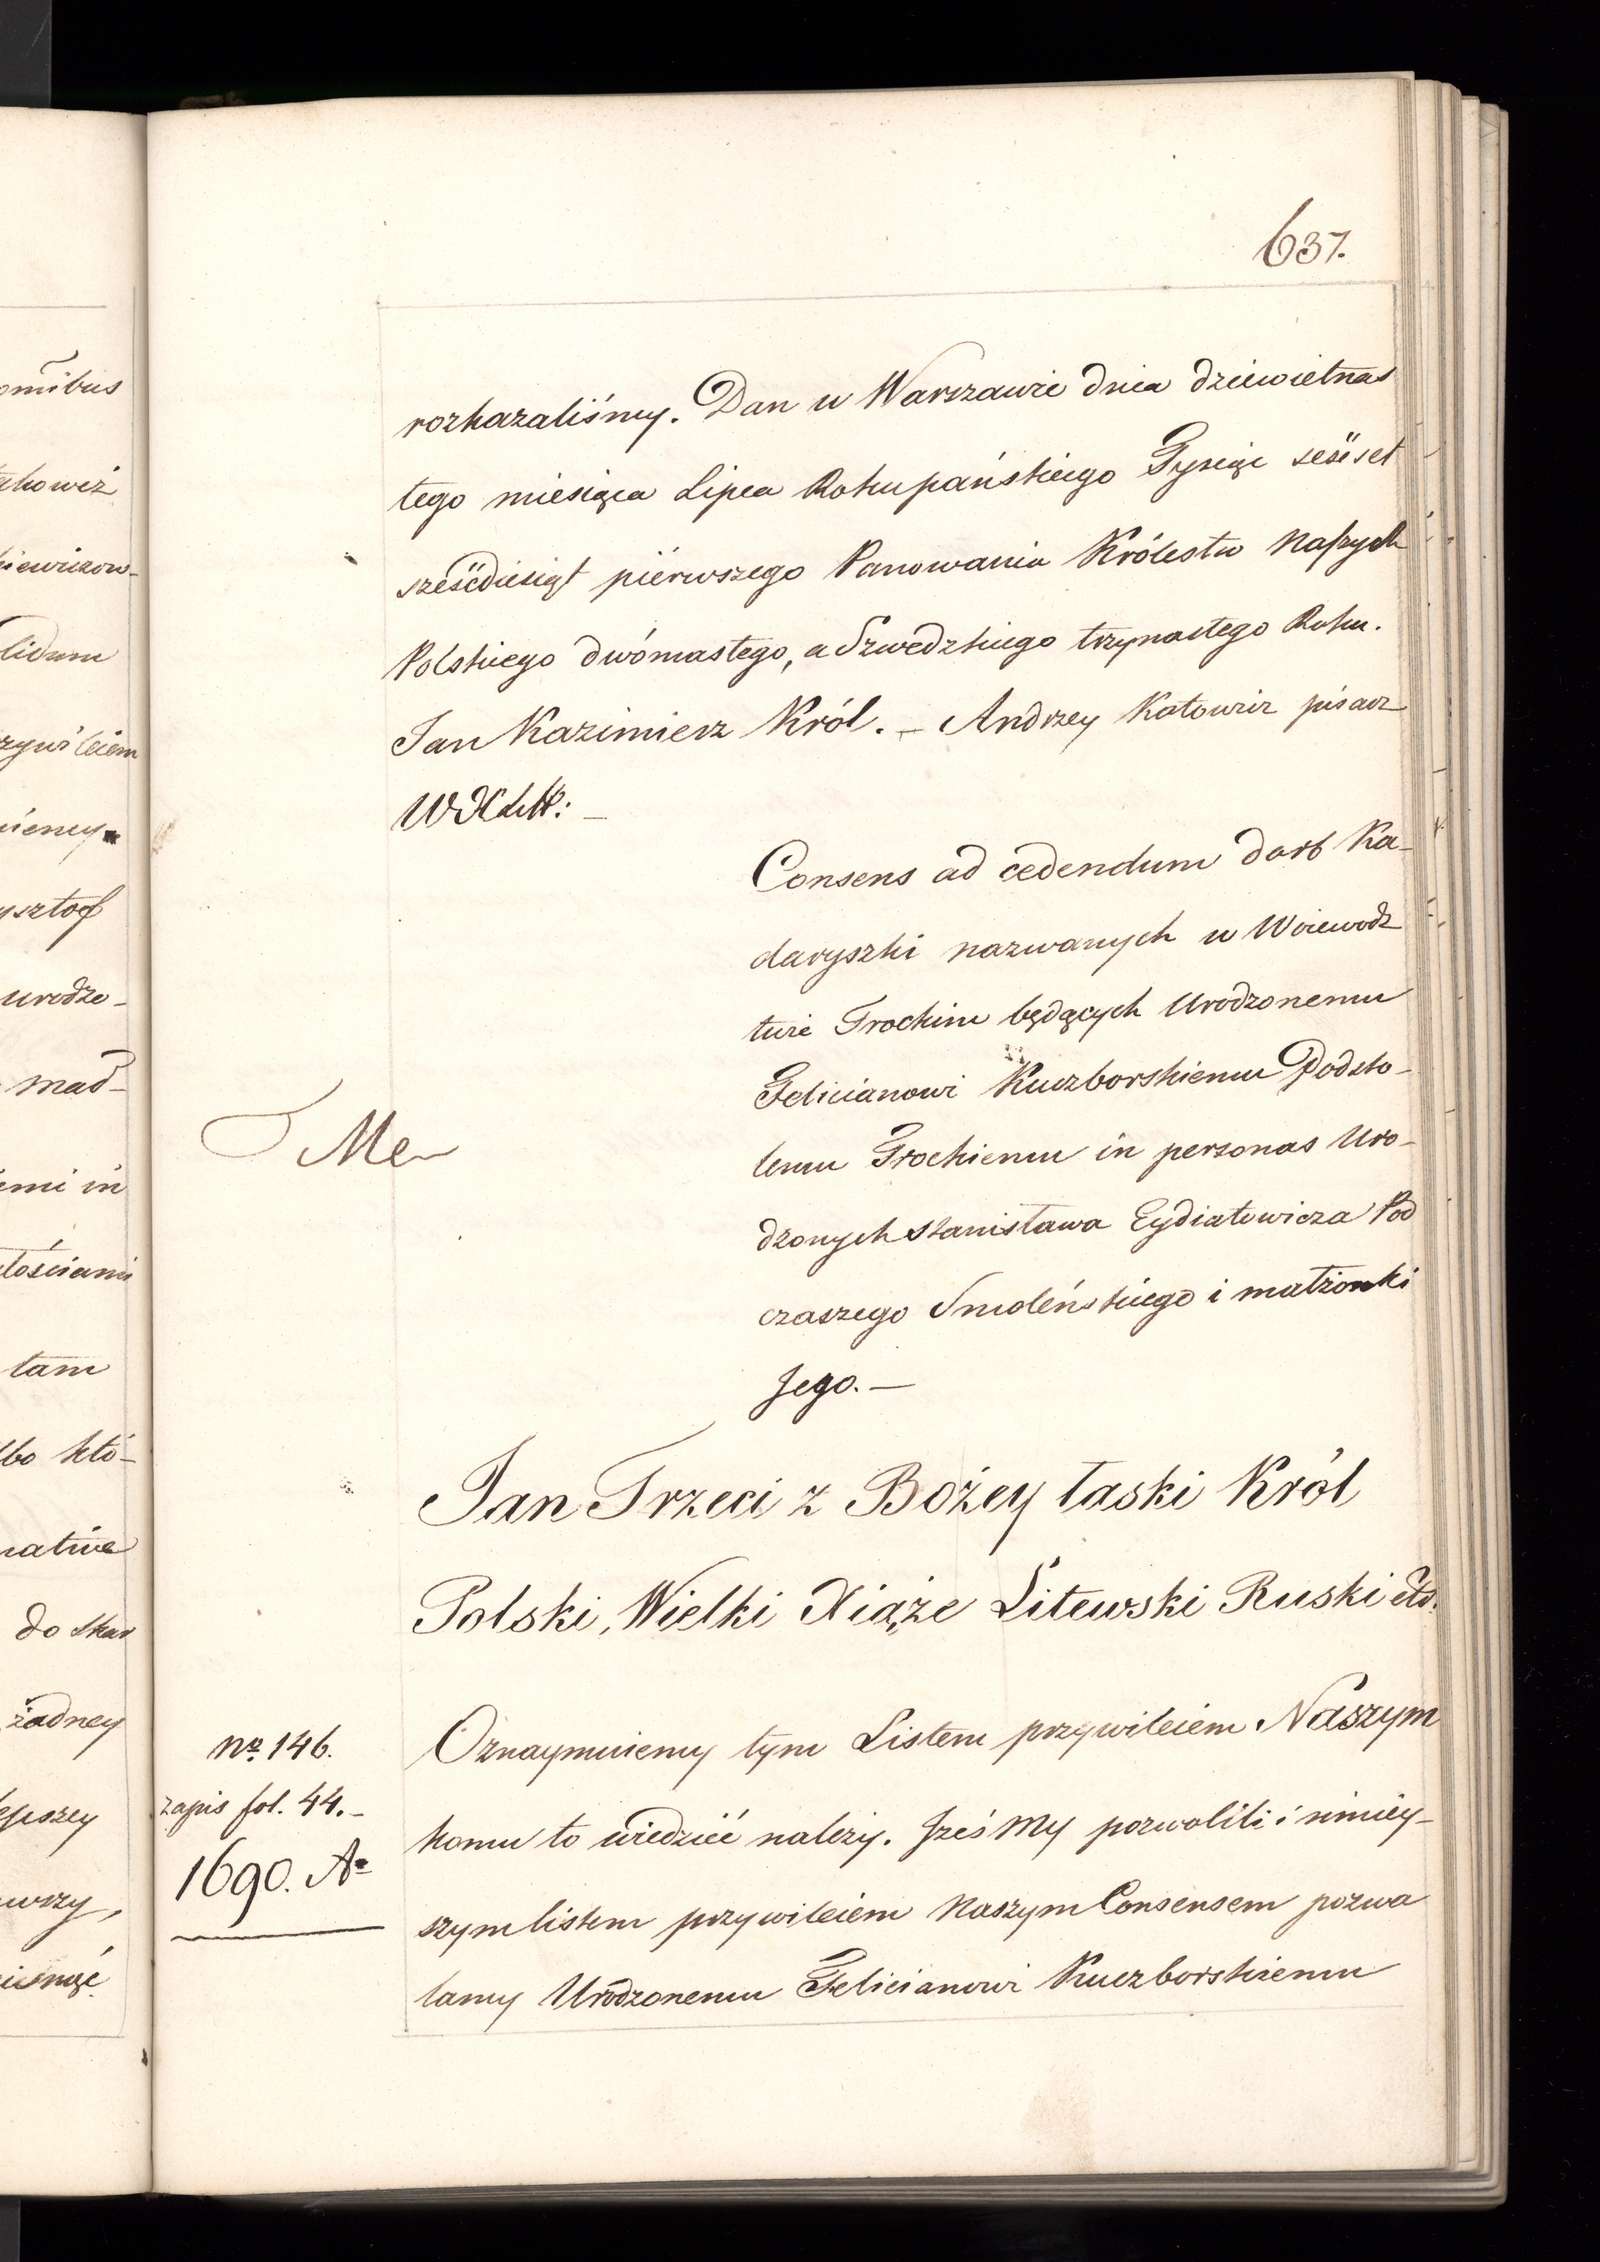 637.
rozkazaliśmy. Dan w Warszawie dnia dziewietnas
tego miesiąca Lipca Roku pańskiego Tysiąc sześset
sześćdiesiąt piérwszego Panowania Królestw Naszych
Polskiego dwónastego, a Szwedzkiego trzynastego Roku.
Jan Kazimierz Król. – Andrzey Kotowicz pisarz
Consens ad cedendum dobr Ka-
daryszki nazwanych w Woiewodz
twie Trockim będących Urodzonemu
Felicianowi Kuczborskiemu Podsto-
lemu Trockiemu in personas Uro-
dzonych Stanisława Eydiatowicza Pod
czaszego Smoleńskiego i małżonki
Jego. –
Jan Trzeci z Bożey łaski Król
Polski, Wielki Xiąże Litewski Ruski etc.
No 146.
zapis fol. 44. –
1690. Ao
Oznaymuiemy tym Listem przywileiem Naszym
komu to wiedzieć należy. Jześ My pozwolili i niniey-
szym listem przywileiem Naszym Consensem pozwa
lamy Urodzonemu Felicianowi Kuczborskiemu